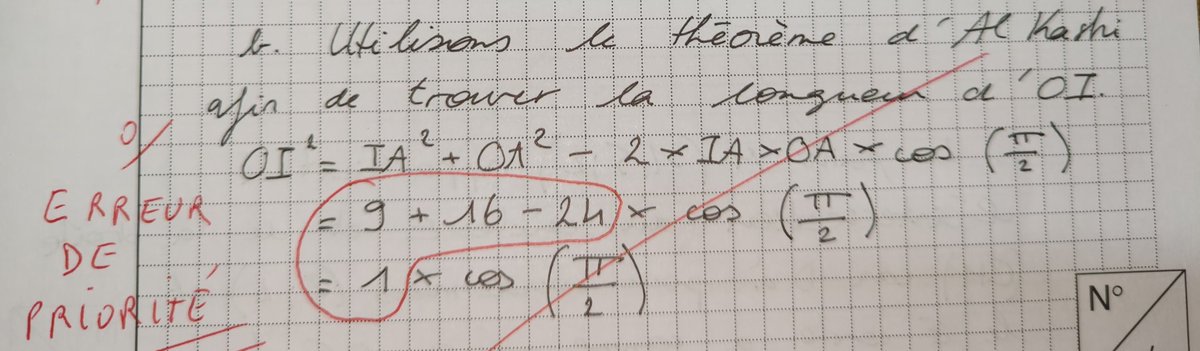 b. Utilisons le théorème d'Al Kashi
afin de trouver la longueur d'OI.
0/
OI² = IA² + OA² - 2 × IA × OA × cos (π/2)
ERREUR
= 9 + 16 - 24 × cos (π/2)
DE
= 1 × cos (π/2)
PRIORITÉ
N°